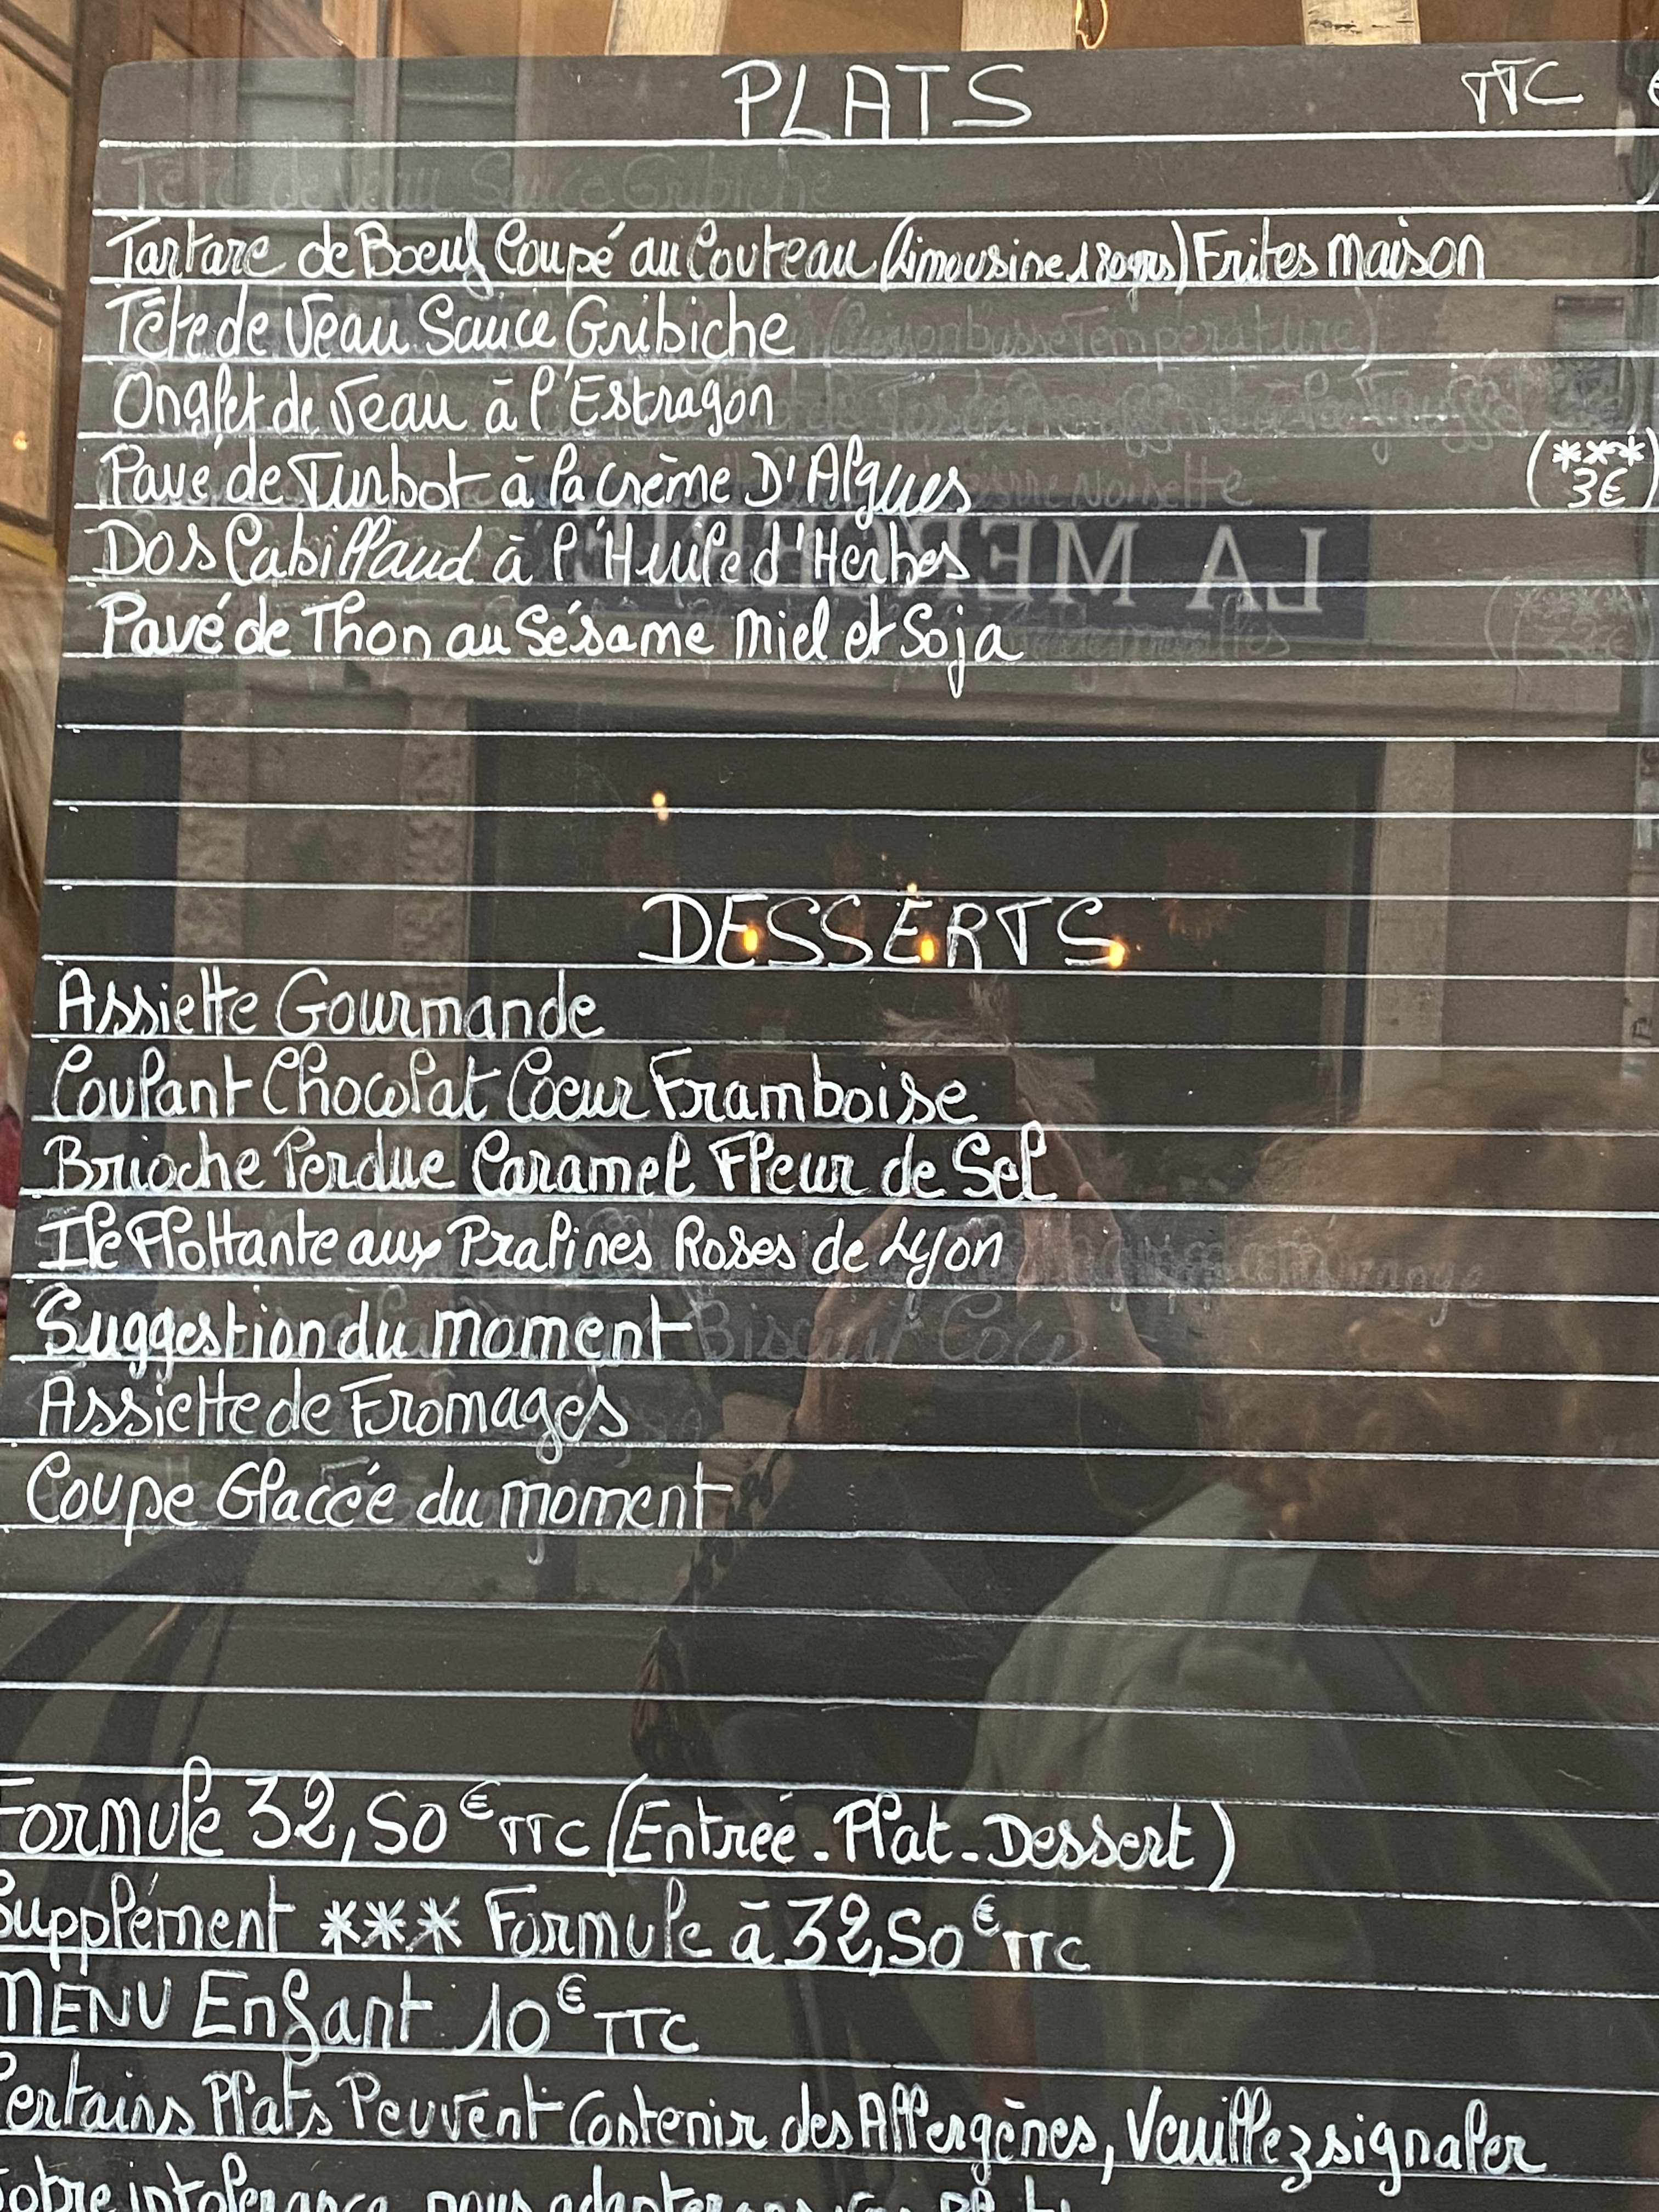 PLATS TTC €
Tête de Veau Sauce Gribiche
Tartare de Boeuf Coupé au Couteau (Limousine 180grs) Frites Maison
Tête de Veau Sauce Gribiche (Cuisson basse Température)
Onglet de Veau à l'Estragon
Pavé de Turbot à la Crème D'Algues (*** 3€)
Noisette
LA MERCERIE
Dos Cabillaud à l'Huile d'Herbes
Pavé de Thon au Sésame Miel et Soja
DESSERTS
Assiette Gourmande
Coulant Chocolat Coeur Framboise
Brioche Perdue Caramel Fleur de Sel
Ile Flottante aux Pralines Roses de Lyon
Orange
Suggestion du Moment
Biscuit Coco
Assiette de Fromages
Coupe Glacée du Moment
Formule 32,50€ TTC (Entrée - Plat - Dessert)
Supplément *** Formule à 32,50€ TTC
MENU Enfant 10€ TTC
Certains Plats Peuvent Contenir des Allergènes, Veuillez signaler
intolérance, nous adapterons